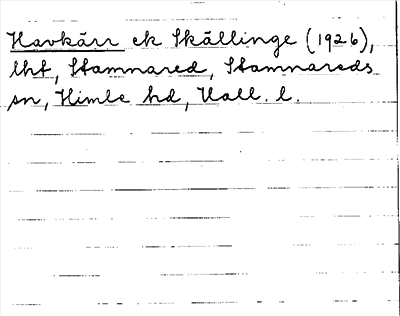 Havkärr ek Skällinge (1926),
lht, Stamnared, Stamnareds
sn, Himle hd, Hall. l.